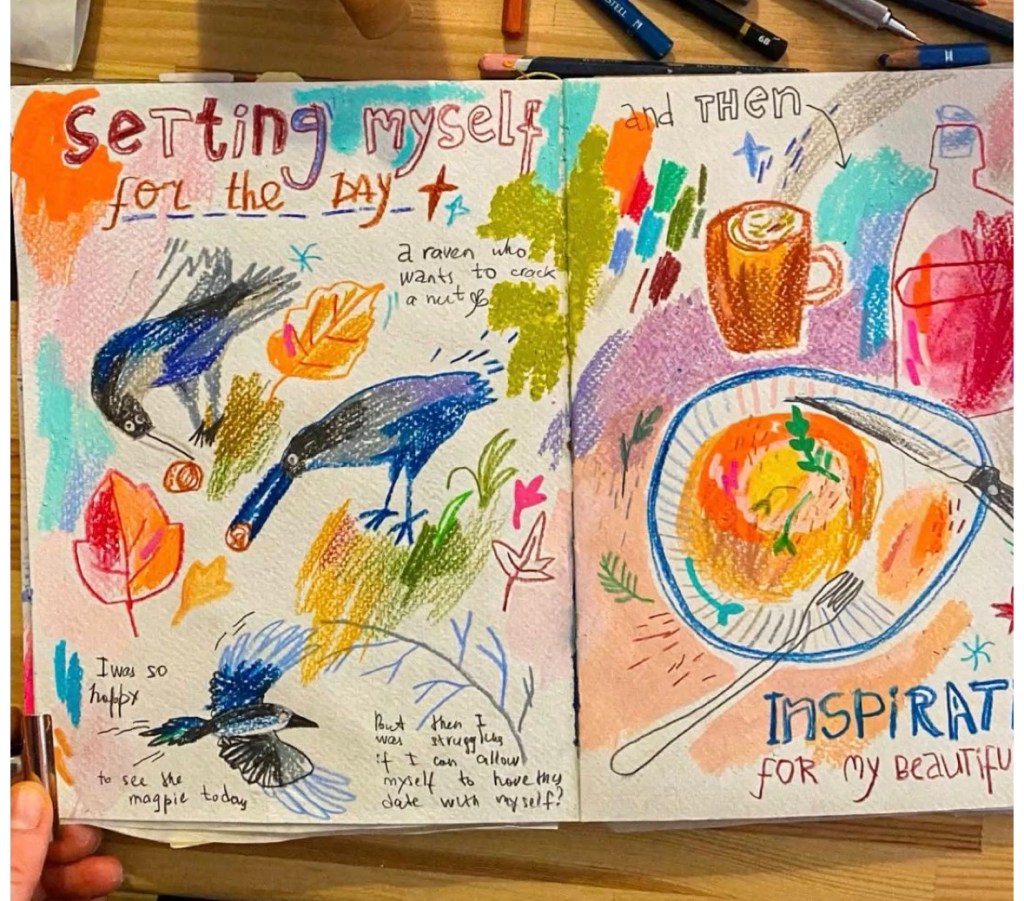 Setting myself
for the DAY
a raven who
wants to crack
a nut
I was so
happy
to see the
magpie today
But then I
was struggling
if I can allow
myself to have this
date with myself?
and THEN
INSPIRATI
FOR MY BEAUTIFU
6B